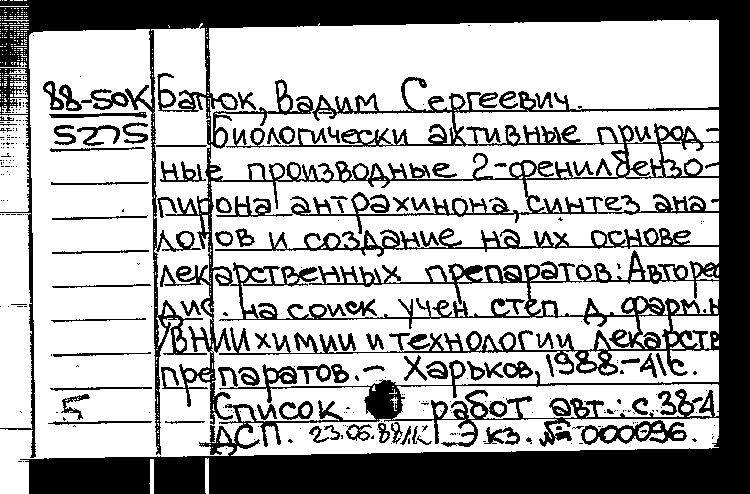 88-50К Батюк, Вадим Сергеевич.
5275 Биологически активные природ-
ные производные 2-фенилбензо-
пирона антрахинона, синтез ана-
логов и создание на их основе
лекарственных препаратов: Авторес
дис. на соиск. учен. степ. д. фарм. н
/ВНИИ химии и технологии лекарств
препаратов. - Харьков, 1988. - 41 с.
5 Список работ авт.: с. 38-4
ДСП. 23.06.88 Экз. № 000096.